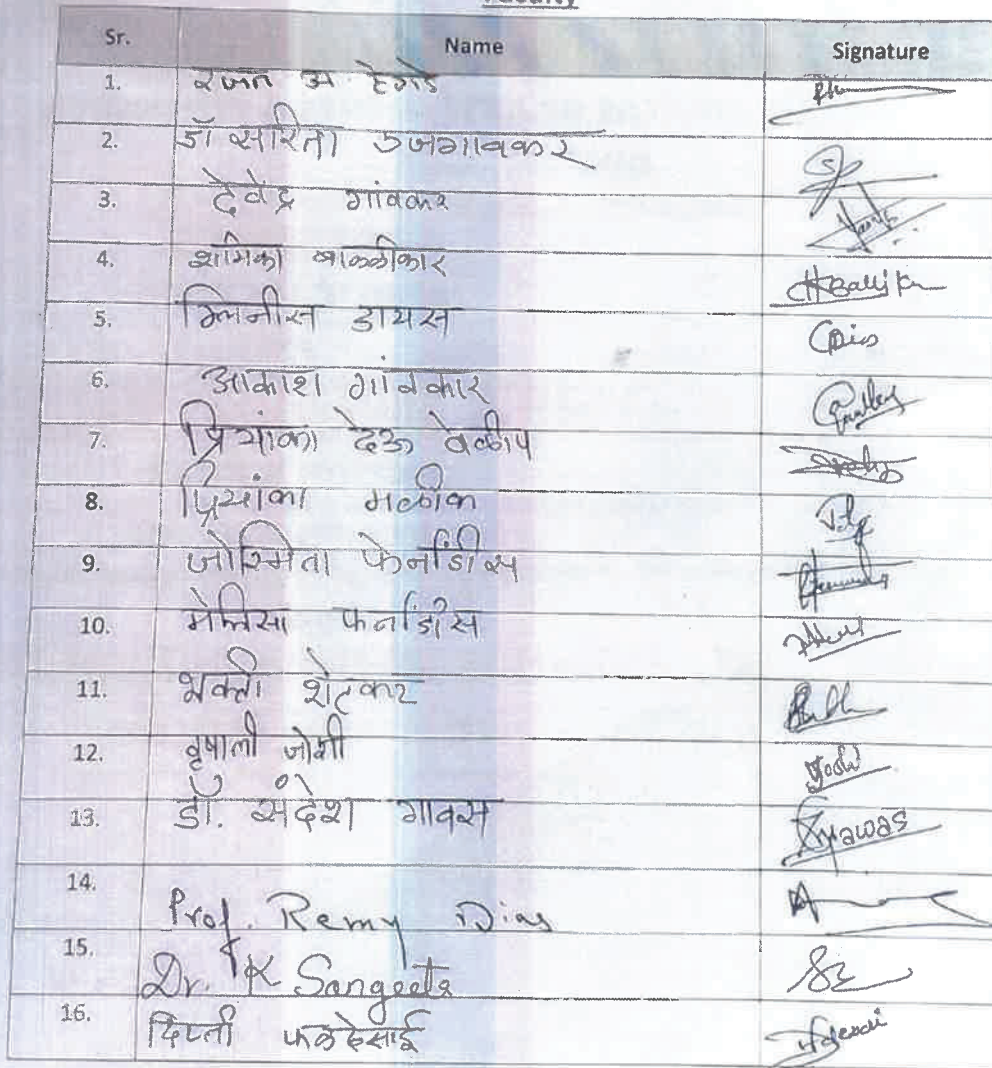 Faculty
Sr. Name Signature
1. रजत अ. हेगडे
2. डॉ सरिता उजगावकर
3. देवेंद्र गांवकर
4. शमिका बाळ्ळीकार
5. ग्लिनीस डायस Dias
6. आकाश गांवकार
7. प्रियांका देऊ वेळीप
8. प्रियांका मळीक
9. जोस्मिता फेर्नांडीस
10. मेलिसा फर्नांडीस
11. भक्ती शेटकर
12. वृषाली जोशी Joshi
13. डॉ. संदेश गावस Gawas
14. Prof. Remy Dias
15. Dr. K Sangeeta
16. दिप्ती फळदेसाई